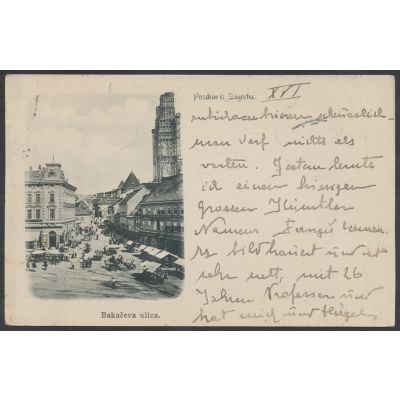 Pozdrav iz Zagreba. XVI
man darf nichts als
warten. Gestern lernte
ich einen hiesigen
grossen Künstler
Namens kennen.
Er bildhauert und ist
sehr nett, mit 26
Jahren Professor und
hat mich und
Bakačeva ulica.